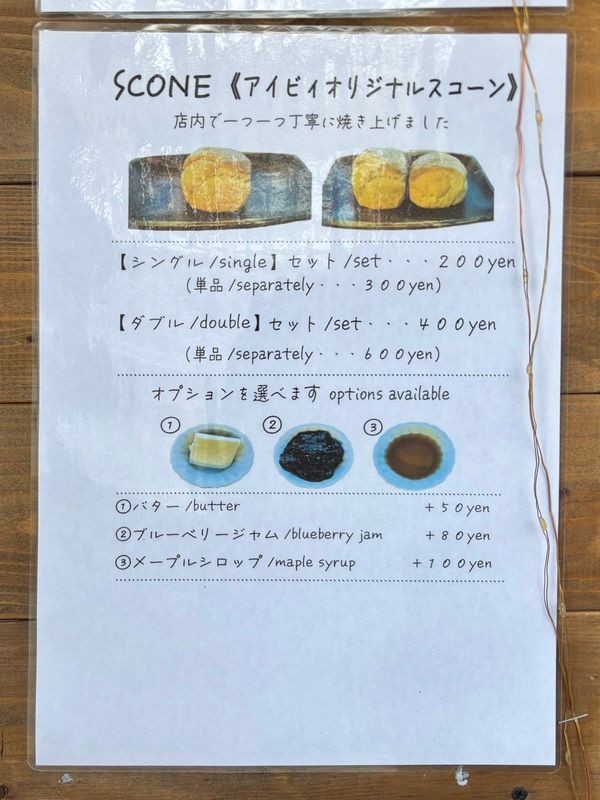 SCONE《アイビィオリジナルスコーン》
店内で一つ一つ丁寧に焼き上げました
【シングル/single】セット/set・・・２００yen
(単品/separately・・・３００yen)
【ダブル/double】セット/set・・・４００yen
(単品/separately・・・６００yen)
オプションを選べます options available
① ② ③
①バター/butter ＋５０yen
②ブルーベリージャム/blueberry jam ＋８０yen
③メープルシロップ/maple syrup ＋１００yen